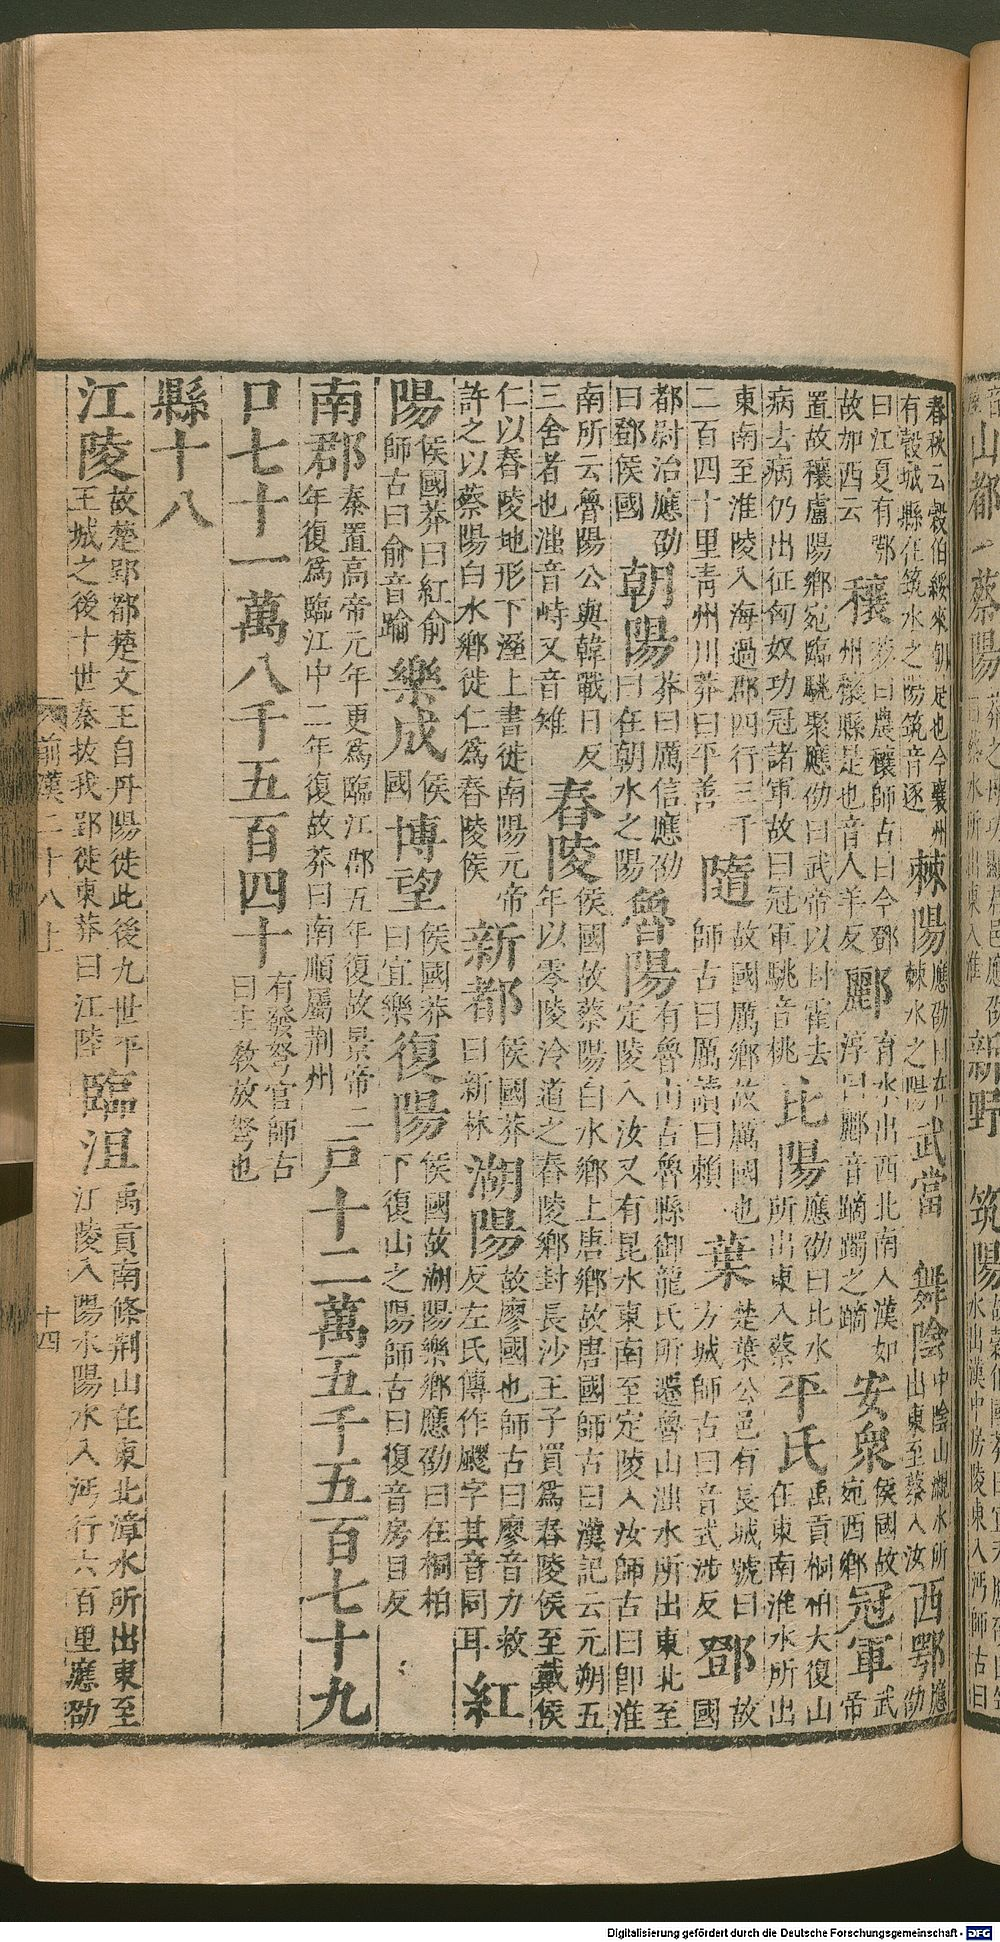 春秋云榖伯綏來朝是也今襄州有榖城縣在筑水之陽筑音逐 棘陽應劭曰在棘水之陽 武當 舞陰中陰山瀙水所出東至蔡入汝 西鄂應劭
曰江夏有鄂故加西云 穰莽曰農穰師古曰今鄧州穰縣是也音人羊反 酈育水出西北南入漢如淳曰酈音蹢躅之蹢 安衆侯國故宛西鄉 冠軍武帝
置故穰盧陽鄉宛臨駣聚應劭曰武帝以封霍去病去病仍出征匈奴功冠諸軍故曰冠軍駣音桃 比陽應劭曰比水所出東入蔡 平氏禹貢桐柏大復山在東南淮水所出
東南至淮陵入海過郡四行三千二百四十里青州川莽曰平善 隨故國厲鄉故厲國也師古曰厲讀曰賴 葉楚葉公邑有長城號曰方城師古曰音式涉反 鄧故國
都尉治應劭曰鄧侯國 朝陽莽曰厲信應劭曰在朝水之陽 魯陽有魯山古魯縣御龍氏所遷魯山滍水所出東北至定陵入汝又有昆水東南至定陵入汝師古曰卽淮
南所云魯陽公與韓戰日反三舍者也滍音峙又音雉 舂陵侯國故蔡陽白水鄉上唐鄉故唐國師古曰漢記云元朔五年以零陵泠道之舂陵鄉封長沙王子買爲舂陵侯至戴侯
仁以舂陵地形下溼上書徙南陽元帝許之以蔡陽白水鄉徙仁爲舂陵侯 新都侯國莽曰新林 湖陽故廖國也師古曰廖音力救反左氏傳作飂字其音同耳 紅
陽侯國莽曰紅俞師古曰俞音踰 樂成侯國 博望侯國莽曰宜樂 復陽侯國故湖陽樂鄉應劭曰在桐柏下復山之陽師古曰復音房目反
南郡秦置高帝元年更爲臨江郡五年復故景帝二年復爲臨江中二年復故莽曰南順屬荆州 戶十二萬五千五百七十九
口七十一萬八千五百四十有發弩官師古曰主敎放弩也
縣十八
江陵故楚郢都楚文王自丹陽徙此後九世平王城之後十世秦拔我郢徙東莽曰江陸 臨沮禹貢南條荆山在東北漳水所出東至江陵入陽水陽水入沔行六百里應劭
前漢二十八上
十四
Digitalisierung gefördert durch die Deutsche Forschungsgemeinschaft - DFG